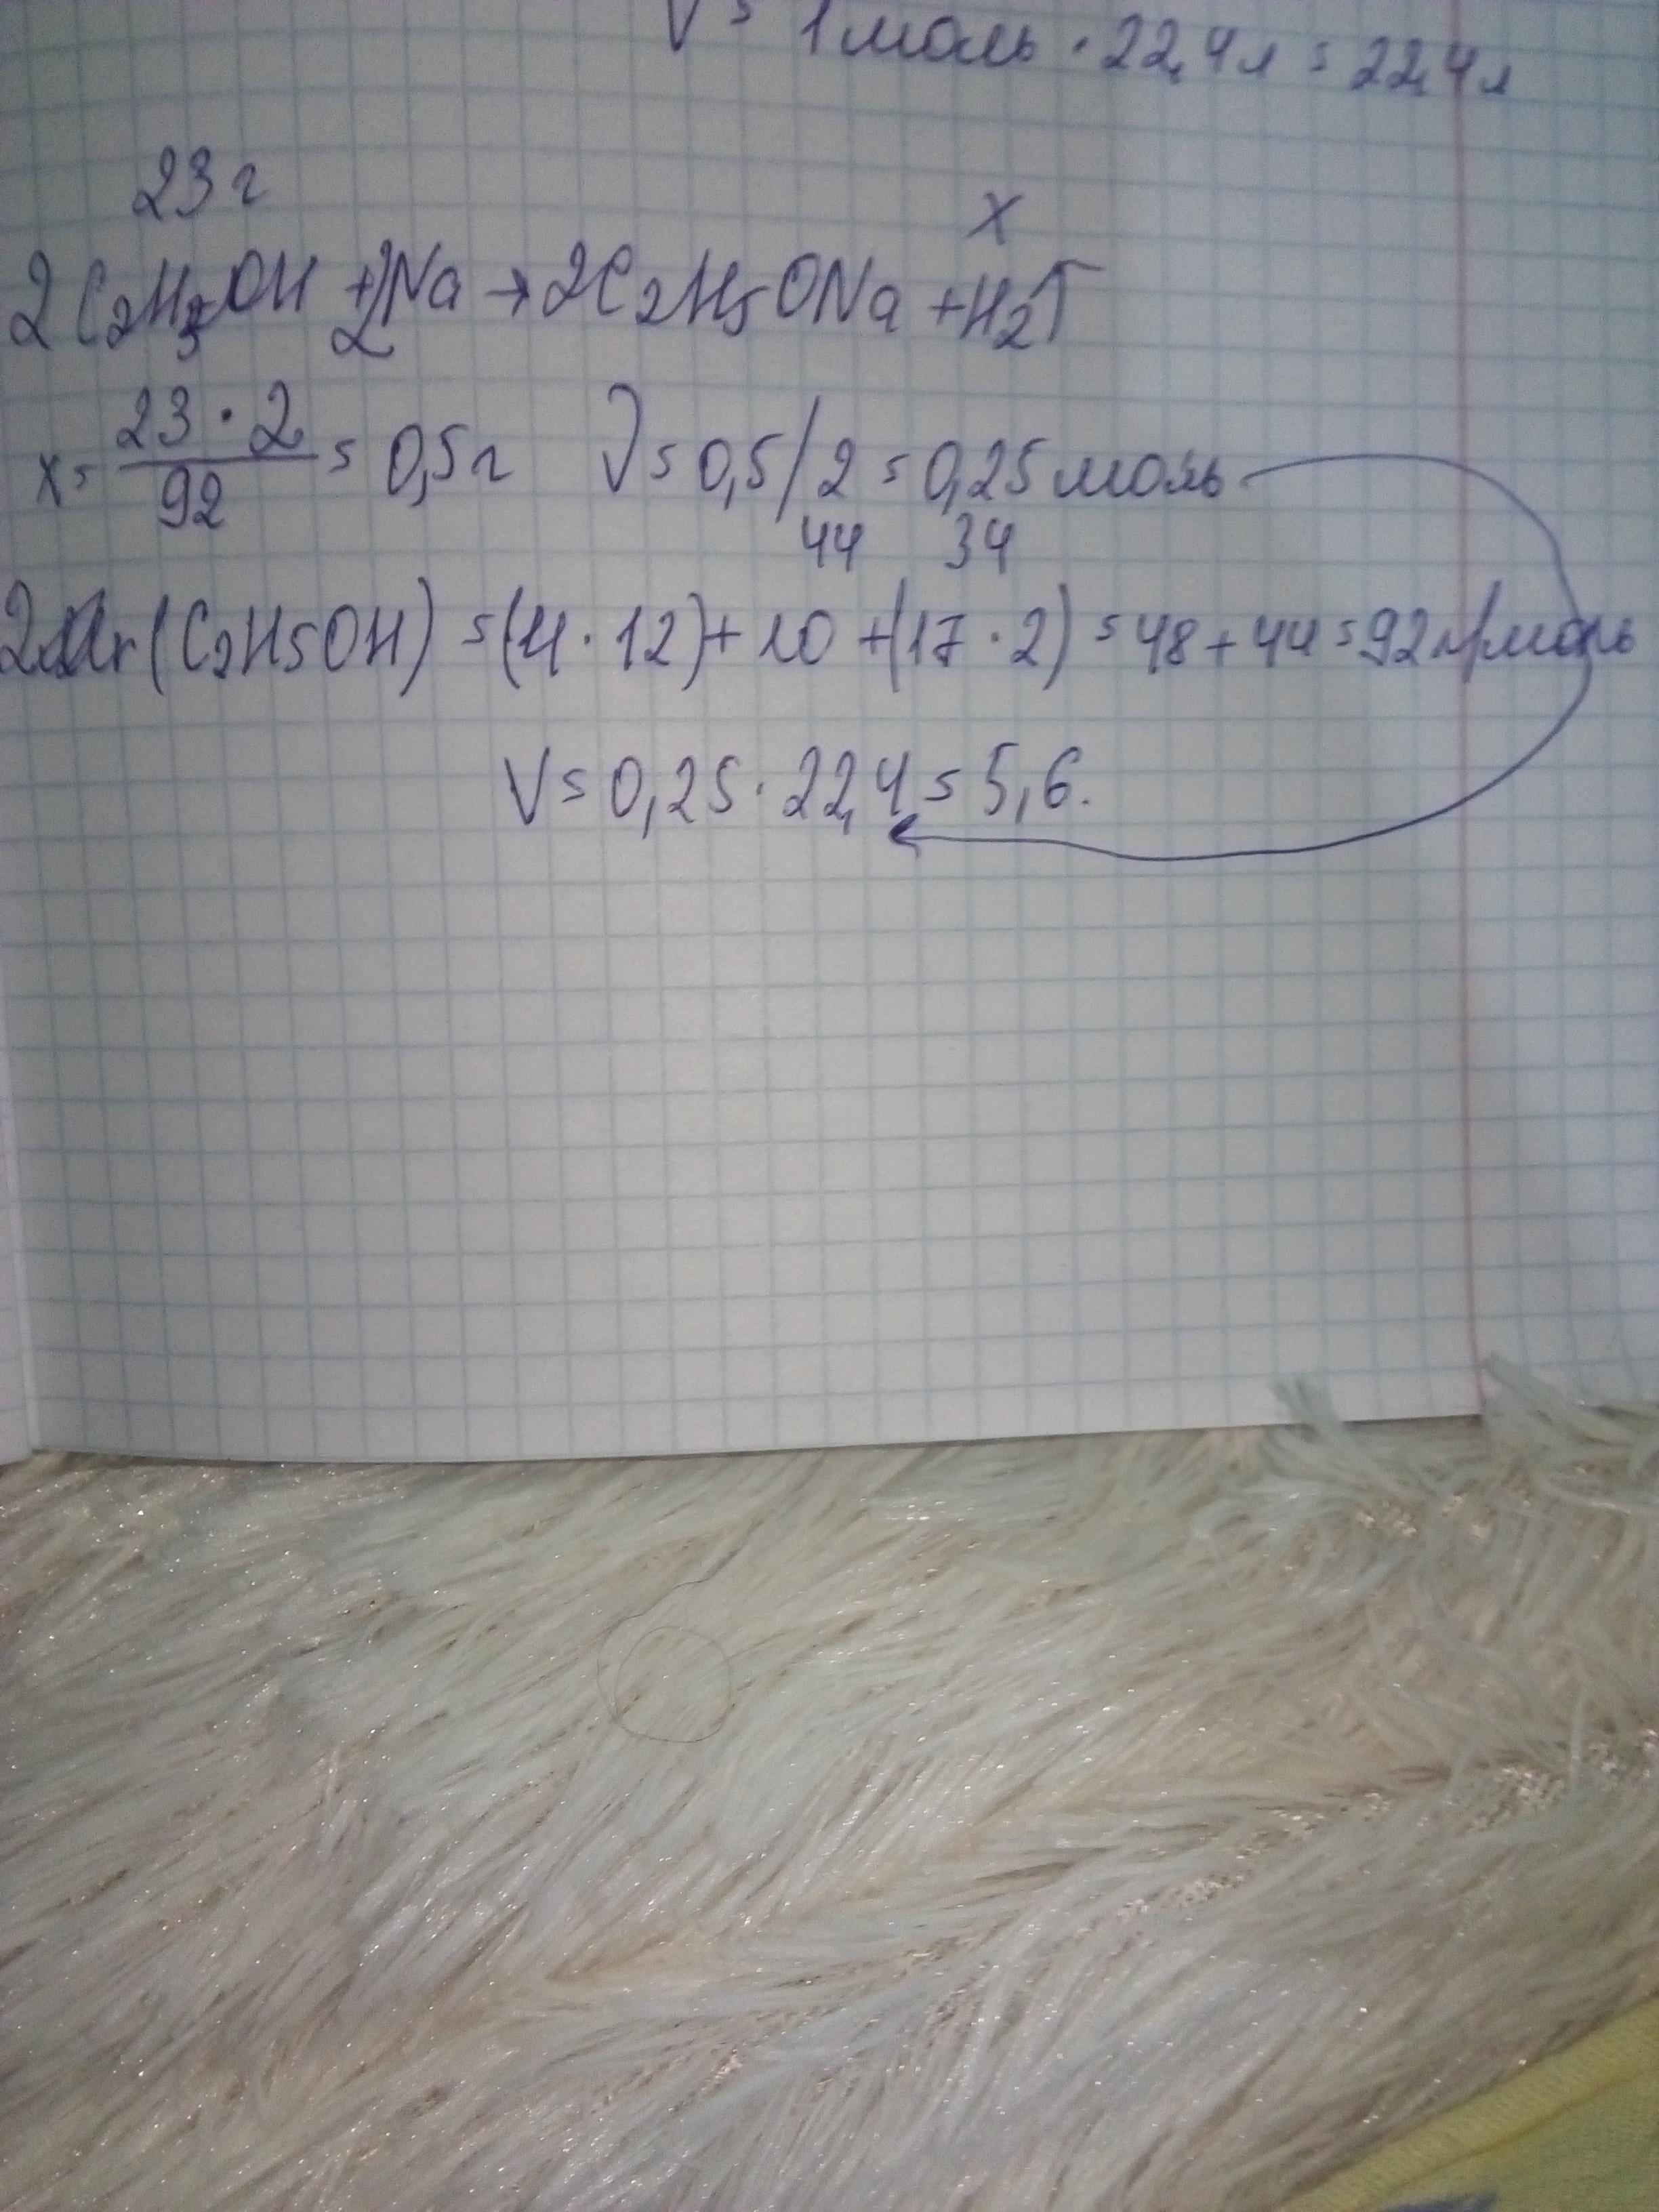 V = 1 моль · 22,4 л = 22,4 л
23 г
x
2C₂H₅OH + 2Na → 2C₂H₅ONa + H₂↑
x = 23 · 2 / 92 = 0,5 г ν = 0,5/2 = 0,25 моль
44 34
2Mr(C₂H5OH) = (4 · 12) + 10 + (17 · 2) = 48 + 44 = 92 г/моль
V = 0,25 · 22,4 = 5,6.